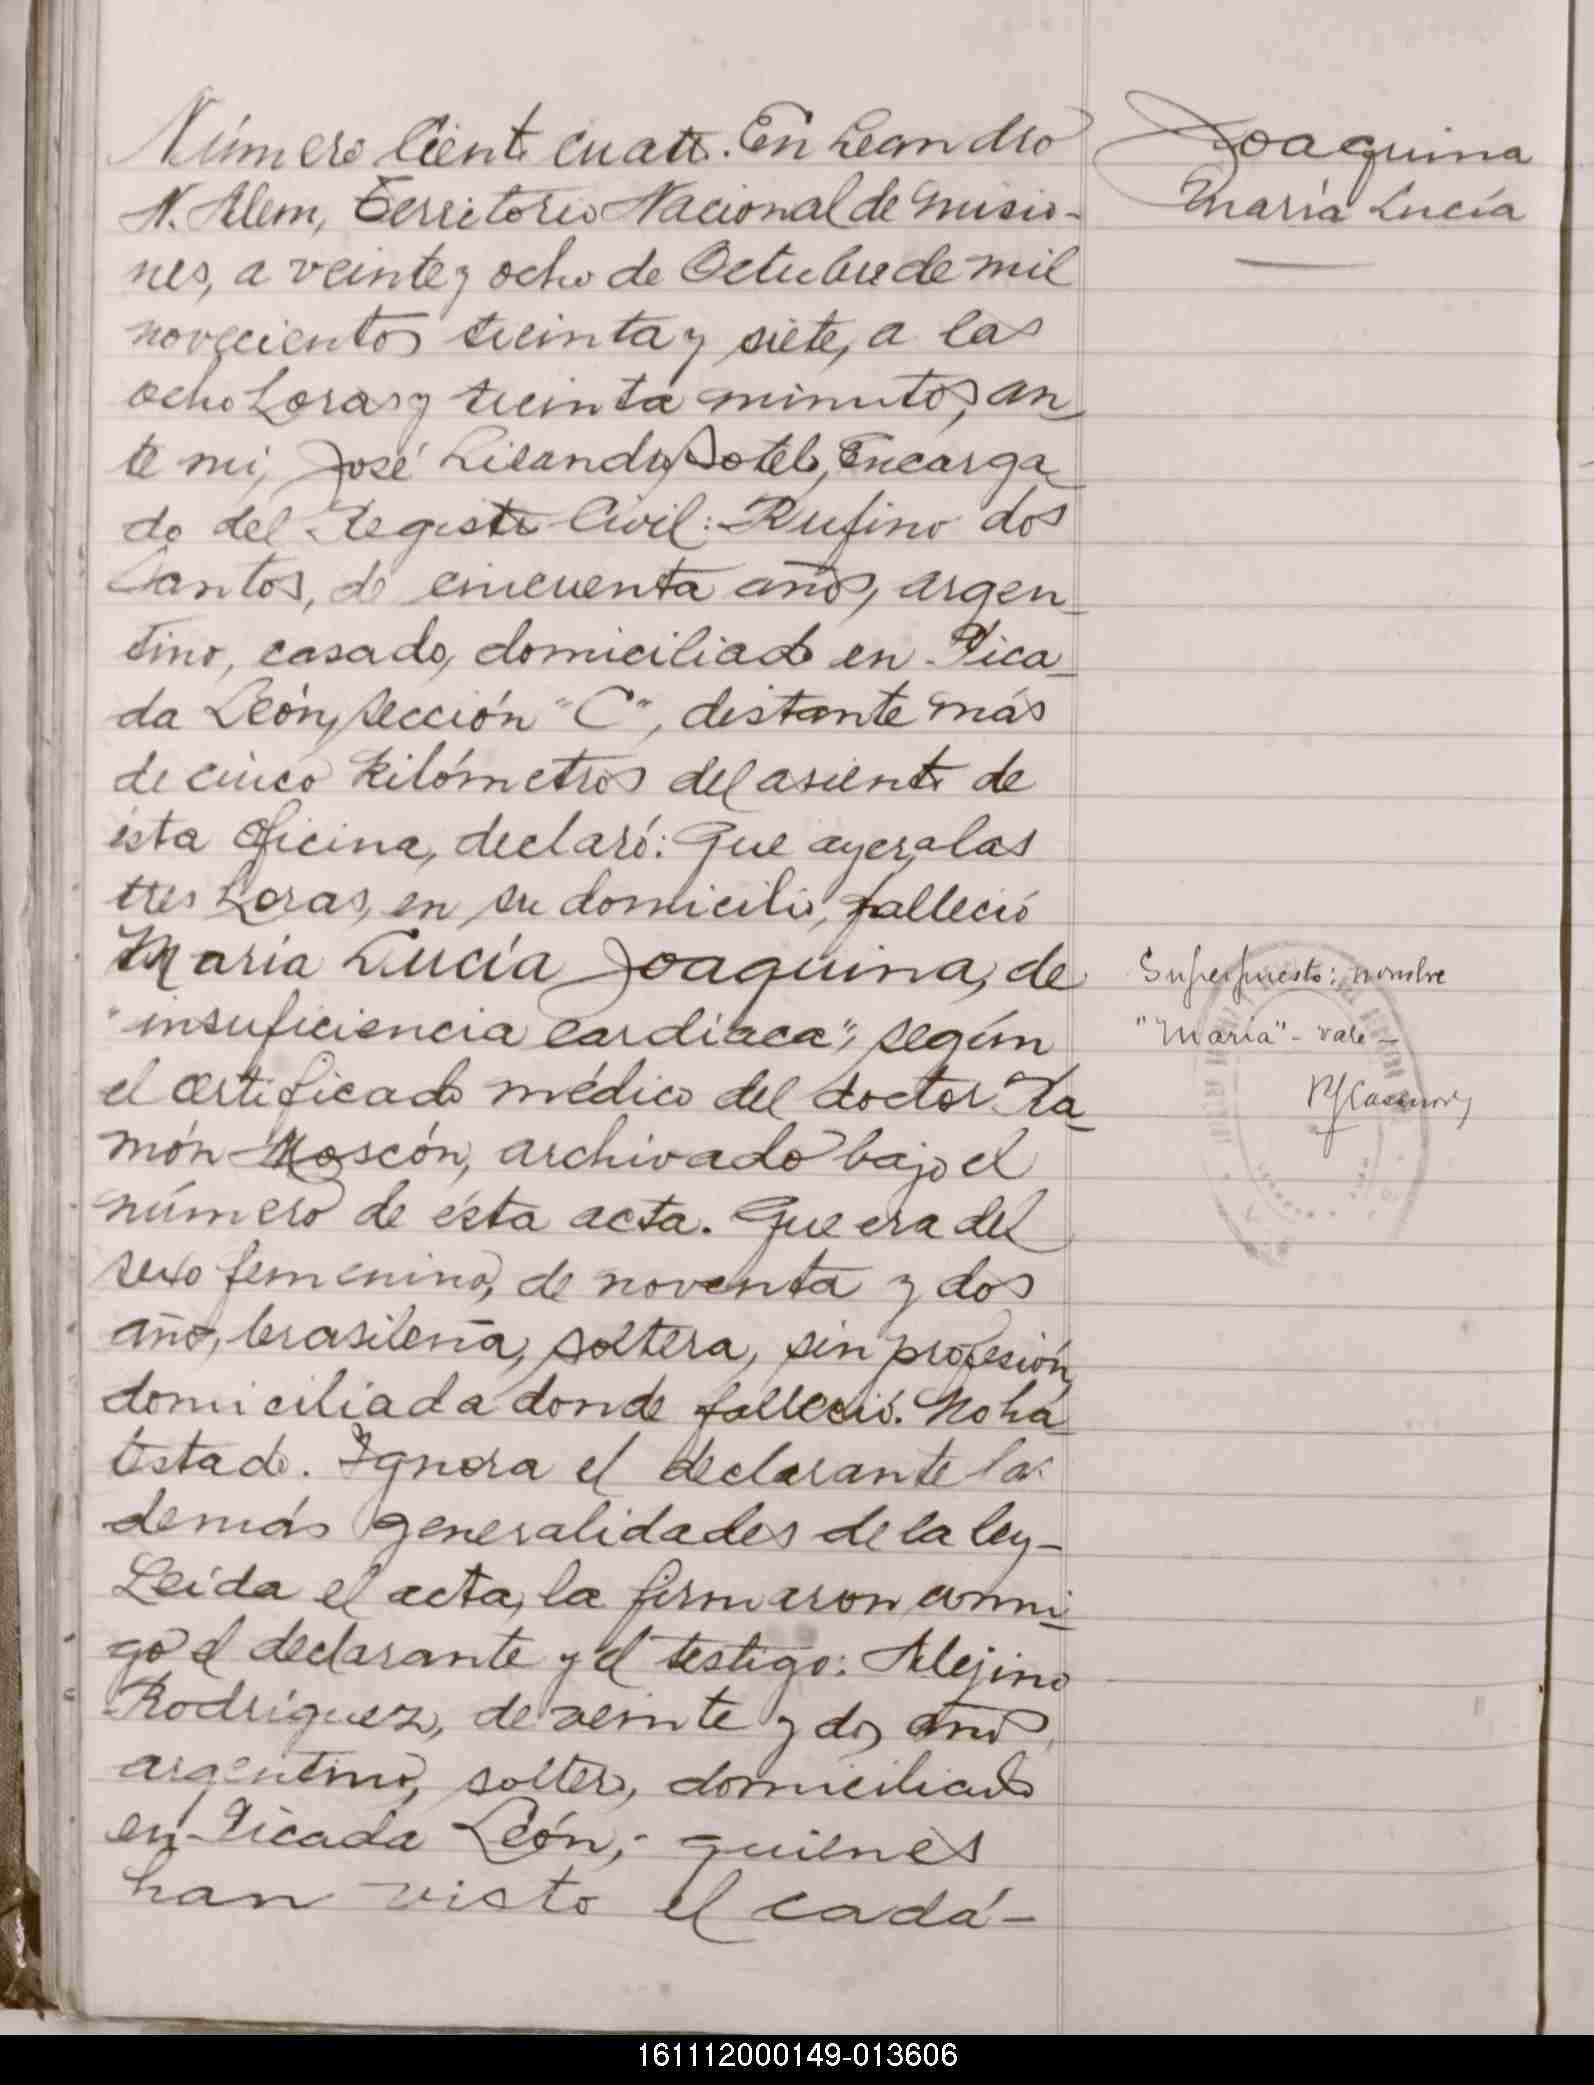 Número Ciento cuatro. En Leandro
N. Alem, Territorio Nacional de Misio-
nes, a veinte y ocho de Octubre de mil
novecientos treinta y siete, a las
ocho horas y treinta minutos, an-
te mi, José Lisandro Sotelo, Encarga-
do del Registro Civil: Rufino dos
Santos, de cincuenta años, argen-
tino, casado, domiciliado en Pica-
da León, sección "C", distante más
de cinco kilómetros del asiento de
ésta oficina, declaró: Que ayer, a las
tres horas, en su domicilio, falleció
María Lucía Joaquina, de
"insuficiencia cardíaca", según
el certificado médico del doctor Ra-
món Moscón, archivado bajo el
número de ésta acta. Que era del
sexo femenino, de noventa y dos
años, brasileña, soltera, sin profesión,
domiciliada donde falleció. No ha
testado. Ignora el declarante las
demás generalidades de la ley-
Leída el acta, la firmaron conmi-
go el declarante y el testigo: Alejino
Rodríguez, de veinte y dos años,
argentino, soltero, domiciliado
en Picada León; quienes
han visto el cadá-
Joaquina
María Lucía
Superpuesto: nombre
"María" - vale -
161112000149-013606